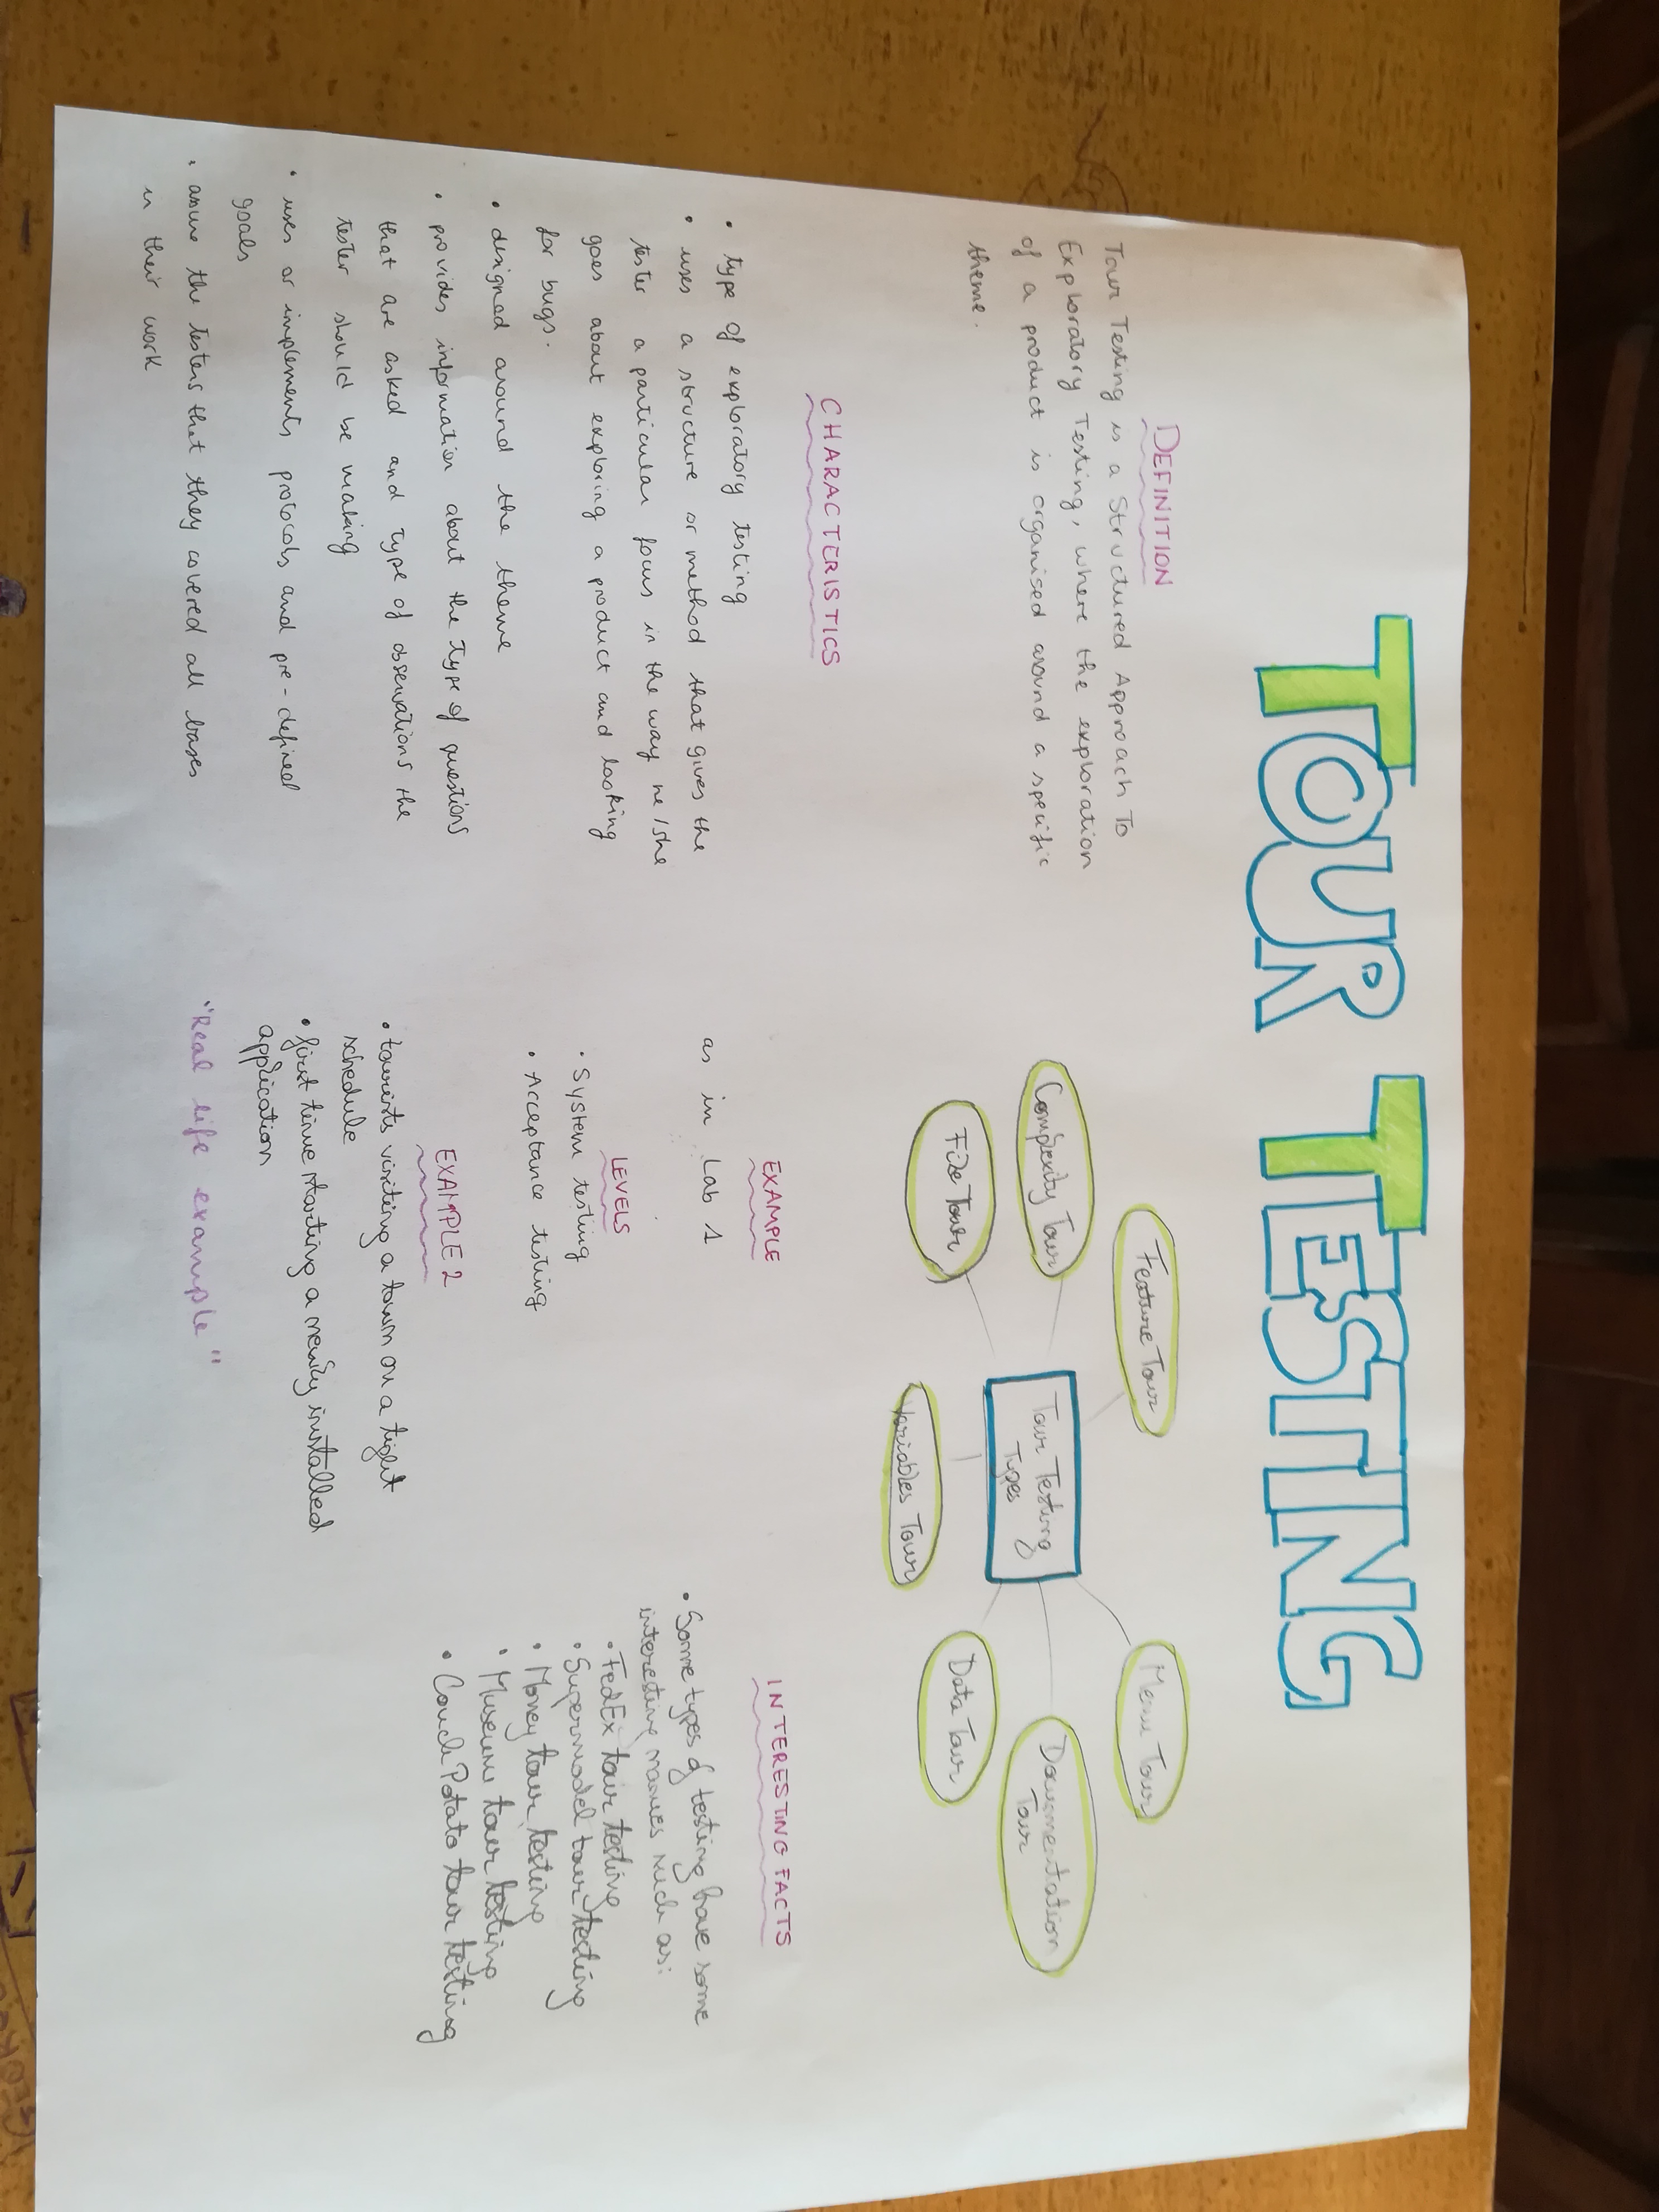 TOUR TESTING
DEFINITION
Tour Testing is a Structured Approach To
Exploratory Testing, where the exploration
of a product is organised around a specific
theme.
CHARACTERISTICS
• type of exploratory testing
• uses a structure or method that gives the
tester a particular focus in the way he/she
goes about exploring a product and looking
for bugs.
• designed around the theme
• provides information about the type of questions
that are asked and type of observations the
tester should be making
• uses or implements protocols and pre-defined
goals
• assure the testers that they covered all bases
in their work
Feature Tour
Complexity Tour
File Tour
Tour Testing
Types
Variables Tour
Menu Tour
Documentation
Tour
Data Tour
EXAMPLE
as in Lab 1
LEVELS
• System testing
• Acceptance testing
EXAMPLE 2
• tourists visiting a town on a tight
schedule
• first time starting a newly installed
application
"Real life example"
INTERESTING FACTS
• Some types of testing have some
interesting names such as:
• FedEx tour testing
• Supermodel tour testing
• Money tour testing
• Museum tour testing
• Couch Potato tour testing